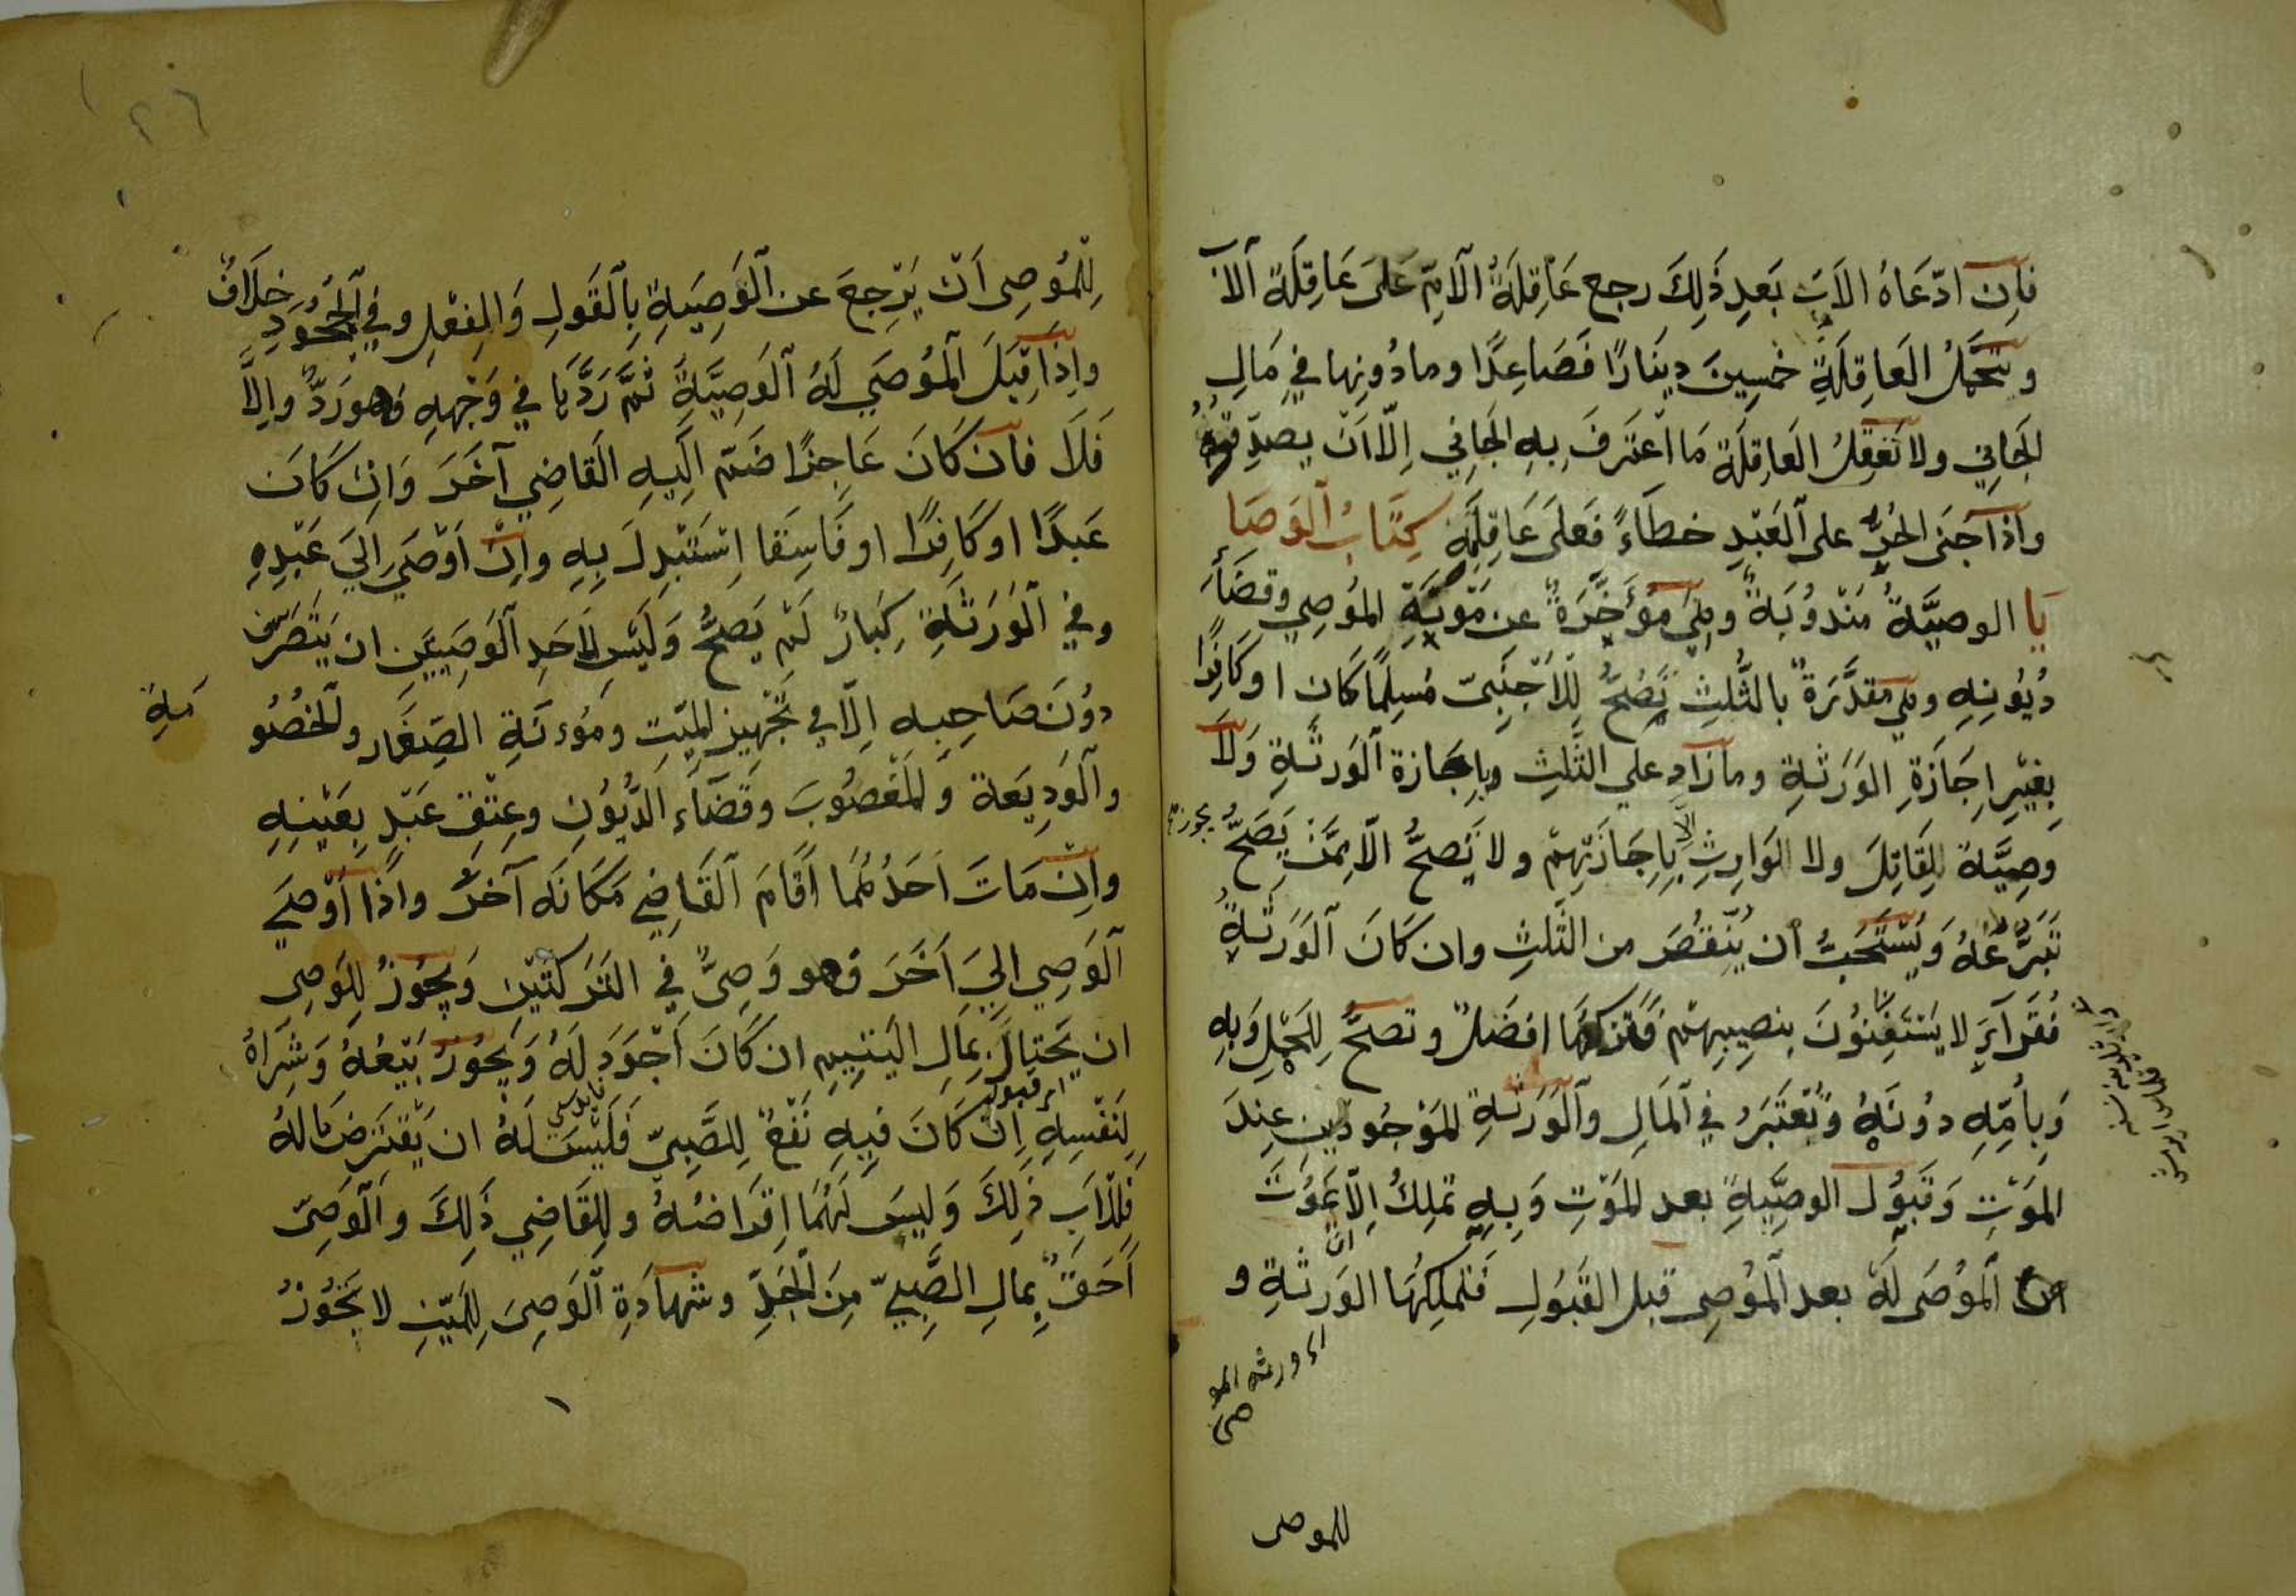 فاِن ادّعَاهُ الاَبُ بَعدِ ذَلِكَ رجع عَاقِلَةُ الاَمِّ عَلىَ عَاقِلَةِ الاَبِ
وتتحَمَّلُ العَاقِلَةِ خمسِينَ دِينَارًا فَصَاعِدًا ومادُونها في مَالِ
الجَانِي ولا تَعَقِلُ العَاقِلَة مَا اعتَرَفَ بِهِ الجَانِي اِلّا اَنْ يصدِّقوهُ
واذا جَنَى الحُرُّ على العَبْدِ خطَاءً فَعلىَ عَاقِلَتِهِ كِتَابُ الوَصَا
يَا الوصيَّةُ مَنْدوُبَةٌ وهِيَ مُؤَخَّرَةٌ عن مَؤنَةِ الموُصِي وقضَأَ
دُيُونِهِ وهي مقدَّرَةٌ بالثُّلثِ تَصِحُّ لِلاَجْنَبِيّ مُسلِمًا كان او كَافِرًا
بِغَيْرِ اِجَازَةِ الوَرَثَةِ ومازَادِ علي الثَّلثِ وبِاِجَازة الوَرثَةِ وَلَا
وصِيَّة للِقَاتِلَ ولا الوَارِثِ اِلا بِاِجَازَتِهِمْ ولا يَصحُّ اِلّا مِمَّنْ يَصَحُّ
تَبَرُّعُهُ وَيُسْتَحَبُّ ان يُنْقَصَ من الثَّلثِ وان كَانَ الوَرَثَةِ
فُقَرآءَ لا يَستَغِنوُنَ بنصِيبِهمْ فَتَركهَا افضَلُ وتصحُّ لِلحَمْلِ وَبِهِ
وَبِأُمِّهِ دوُنَهُ وَتُعْتَبَرُ في المَالِ والوَرثَةِ المَوْجُودَينِ عِندَ
المَوْتِ وَقبوُل الوصِيَّةِ بعد المَوْتِ وَبِهِ تملِكُ اِلّا ان يَموُتَ
المُوُصَى لَهُ بعد المُوصِى قبل القَبُولِ فَتملِكُهَا الوَرثَةِ و
اى ورثه المو
صى
للموصى
لِلمُوصِى اَنْ يَرجِعَ عن الوَصِيَةِ بِالقَولِ وَالفِعْلِ وفي الجُحُودِ خِلَافٌ
واِذَا قَبِلَ المُوصَي لَهُ الوَصِيَّةَ ثمَّ رَدَّهَا في وَجْهِهِ فَهوَ رَدٌّ واِلَّا
فَلَا فاِنْ كَانَ عَاجِزًا ضَمَّ اِلَيهِ القَاضِي آخَرَ وَاِنْ كَانَ
عَبدًا او كَافِرًا او فَاسِقًا اِستَبْدِلَ بِهِ واِنْ اَوْصَي اِليَ عَبْدِهِ
وفي الوَرَثَةِ كِبَارٌ لَمْ يَصحَّ وَلَيسَ لاَحَدِ الوَصِيَيَن ان يَتَصَرَّفَ
دوُنَ صَاحِبِهِ اِلّا في تَجْهِيزِ المَيّتِ ومَؤنَةِ الصِغَار والخصُوُ
مَةِ
والوَدِيَعة وَالمَغْصُوبَ وقَضَآءِ الدُّيُونِ وعِتْقِ عَبْدٍ بِعَيْنِهِ
واِنْ مَاتَ اَحَدُهُمَا اَقَامَ القَاضِي مَكَانَه آخَرَ واذَا اَوْصَي
الوَصِي اِليَ اَخَرَ فهو وَصِىٌّ فِي التَرَكتَيْنِ وَيَجُوزُ لِلوَصِى
ان يَحْتَالَ بِمَالِ اليَتِيمِ ان كَانَ اَجْوَدَ لَهُ وَيَجُوزُ بَيْعُهُ وَشِرَاهُ
لِنَفْسِهِ اِنْ كَانَ فيِهِ نَفْعٌ لِلصَّبِيّ فَلَيْسَ لَهُ ان يَقتَرِضَ مَالهُ
فلِلْاَبِ ذَلِكَ وَلَيسَ لَهُمَا اِقرَاضُهُ ولِلقَاضِي ذَلِكَ والوَصِىّ
اَحَقُّ بِمالِ الصَّبِيّ مِنَ الجَدِّ وشهادَةِ الوَصِىَ لِلمَيّتِ لا يَجُوزُ